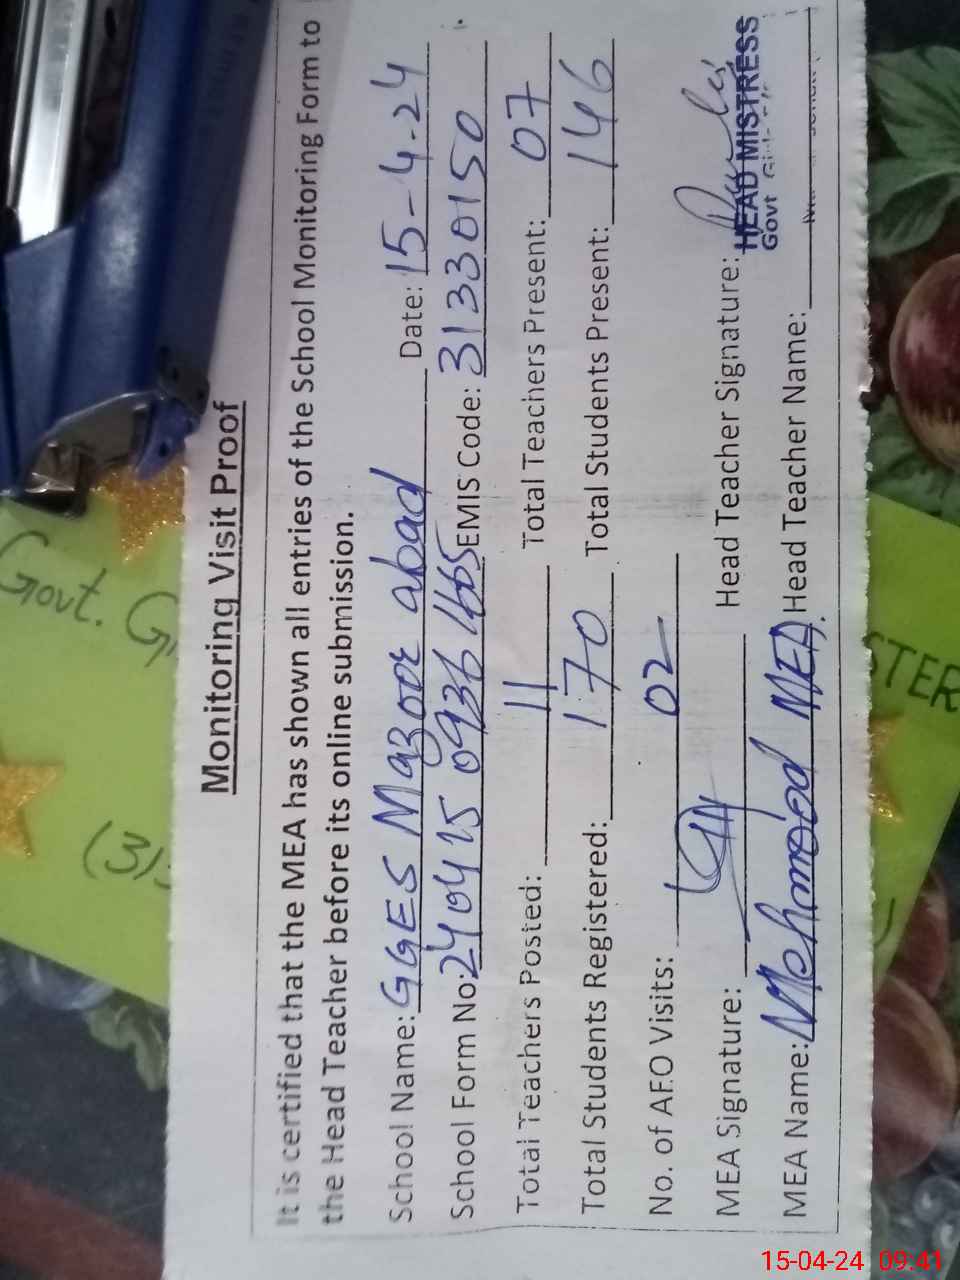 Monitoring Visit Proof
It is certified that the MEA has shown all entries of the School Monitoring Form to
the Head Teacher before its online submission.
School Name: GGES Mazoor abad Date: 15-4-24
School Form No: 240415 0936 1665 EMIS Code: 31330150
Total Teachers Posted: 11 Total Teachers Present: 07
Total Students Registered: 170 Total Students Present: 146
No. of AEO Visits: 02
MEA Signature: Head Teacher Signature:
HEAD MISTRESS
Govt
MEA Name: Mehmood MEA. Head Teacher Name:
Govt.
(3)
STER
15-04-24 09:41